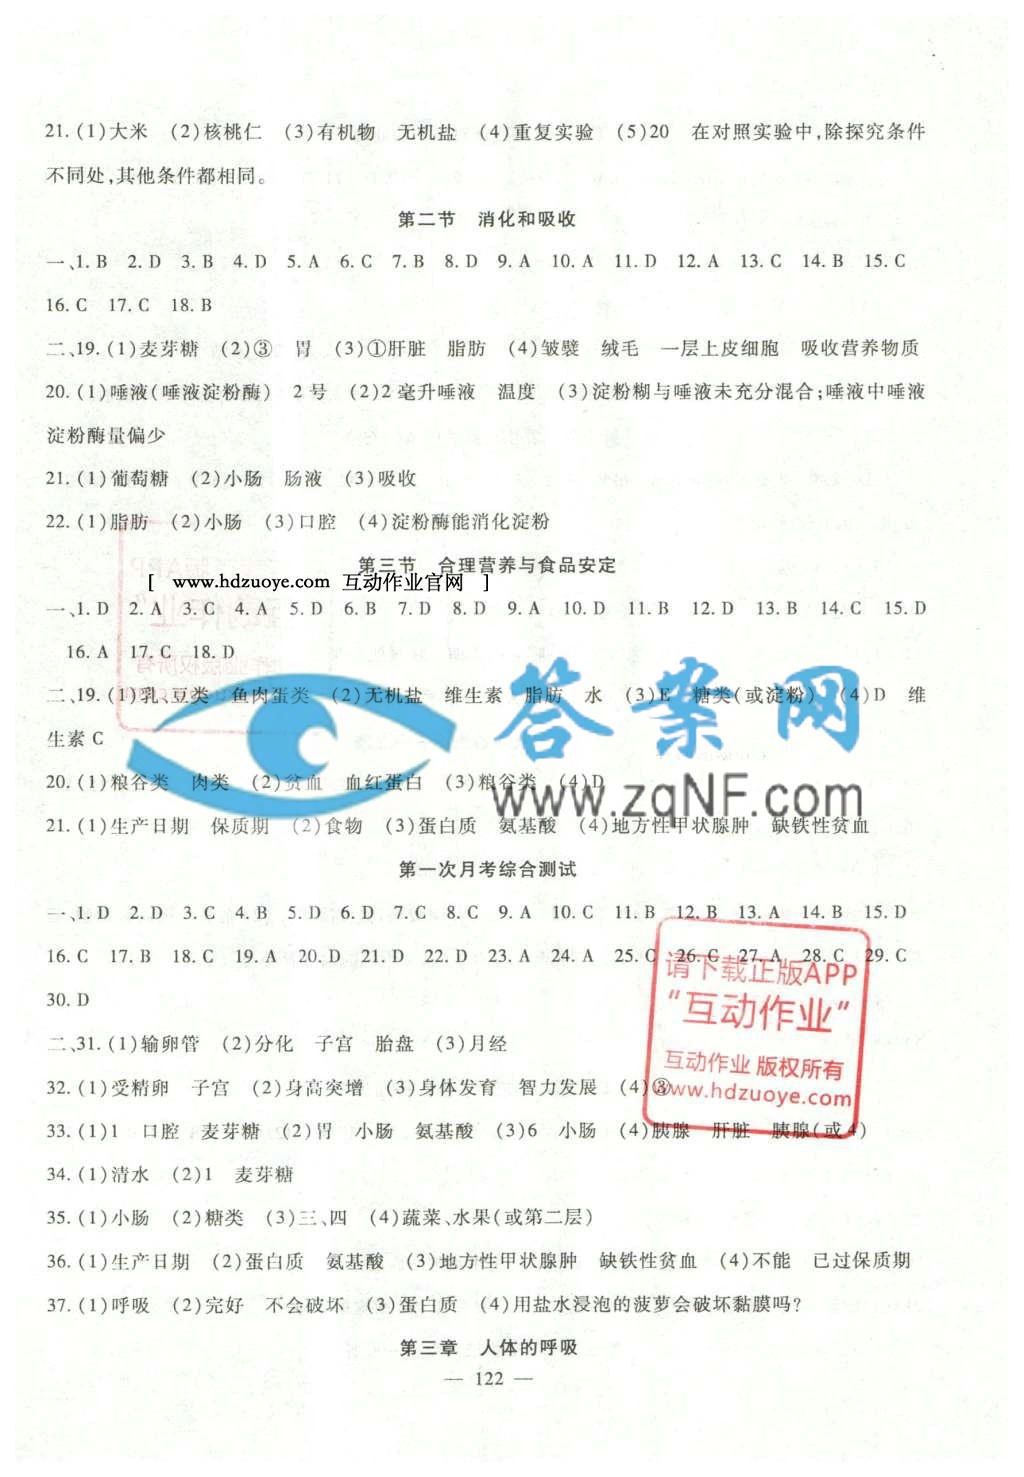 21. (1)大米 (2)核桃仁 (3)有机物 无机盐 (4)重复实验 (5)20 在对照实验中,除探究条件
不同处,其他条件都相同。
第二节 消化和吸收
一、1. B 2. D 3. B 4. D 5. A 6. C 7. B 8. D 9. A 10. A 11. D 12. A 13. C 14. B 15. C
16. C 17. C 18. B
二、19. (1)麦芽糖 (2)③ 胃 (3)①肝脏 脂肪 (4)皱襞 绒毛 一层上皮细胞 吸收营养物质
20. (1)唾液(唾液淀粉酶) 2号 (2)2毫升唾液 温度 (3)淀粉糊与唾液未充分混合;唾液中唾液
淀粉酶量偏少
21. (1)葡萄糖 (2)小肠 肠液 (3)吸收
22. (1)脂肪 (2)小肠 (3)口腔 (4)淀粉酶能消化淀粉
第三节 合理营养与食品安定
[ www.hdzuoye.com 互动作业官网 ]
一、1. D 2. A 3. C 4. A 5. D 6. B 7. D 8. D 9. A 10. D 11. B 12. D 13. C 14. C 15. D
16. A 17. C 18. D
二、19. (1)乳、豆类 鱼肉蛋类 (2)无机盐 维生素 脂肪 水 (3)E 糖类(或淀粉) (4)D 维
生素 C
答案网
www.zqNF.com
20. (1)粮谷类 肉类 (2)贫血 血红蛋白 (3)粮谷类 (4)D
21. (1)生产日期 保质期 (2)食物 (3)蛋白质 氨基酸 (4)地方性甲状腺肿 缺铁性贫血
第一次月考综合测试
一、1. D 2. D 3. C 4. B 5. D 6. D 7. C 8. C 9. A 10. C 11. B 12. B 13. A 14. B 15. D
16. C 17. B 18. C 19. A 20. D 21. D 22. D 23. A 24. A 25. C 26. C 27. A 28. C 29. C
30. D
请下载正版APP
“互动作业”
互动作业 版权所有
www.hdzuoye.com
二、31. (1)输卵管 (2)分化 子宫 胎盘 (3)月经
32. (1)受精卵 子宫 (2)身高突增 (3)身体发育 智力发展 (4)③
33. (1)1 口腔 麦芽糖 (2)胃 小肠 氨基酸 (3)6 小肠 (4)胰腺 肝脏 胰腺(或4)
34. (1)清水 (2)1 麦芽糖
35. (1)小肠 (2)糖类 (3)三、四 (4)蔬菜、水果(或第二层)
36. (1)生产日期 (2)蛋白质 氨基酸 (3)地方性甲状腺肿 缺铁性贫血 (4)不能 已过保质期
37. (1)呼吸 (2)完好 不会破坏 (3)蛋白质 (4)用盐水浸泡的菠萝会破坏黏膜吗?
第三章 人体的呼吸
— 122 —